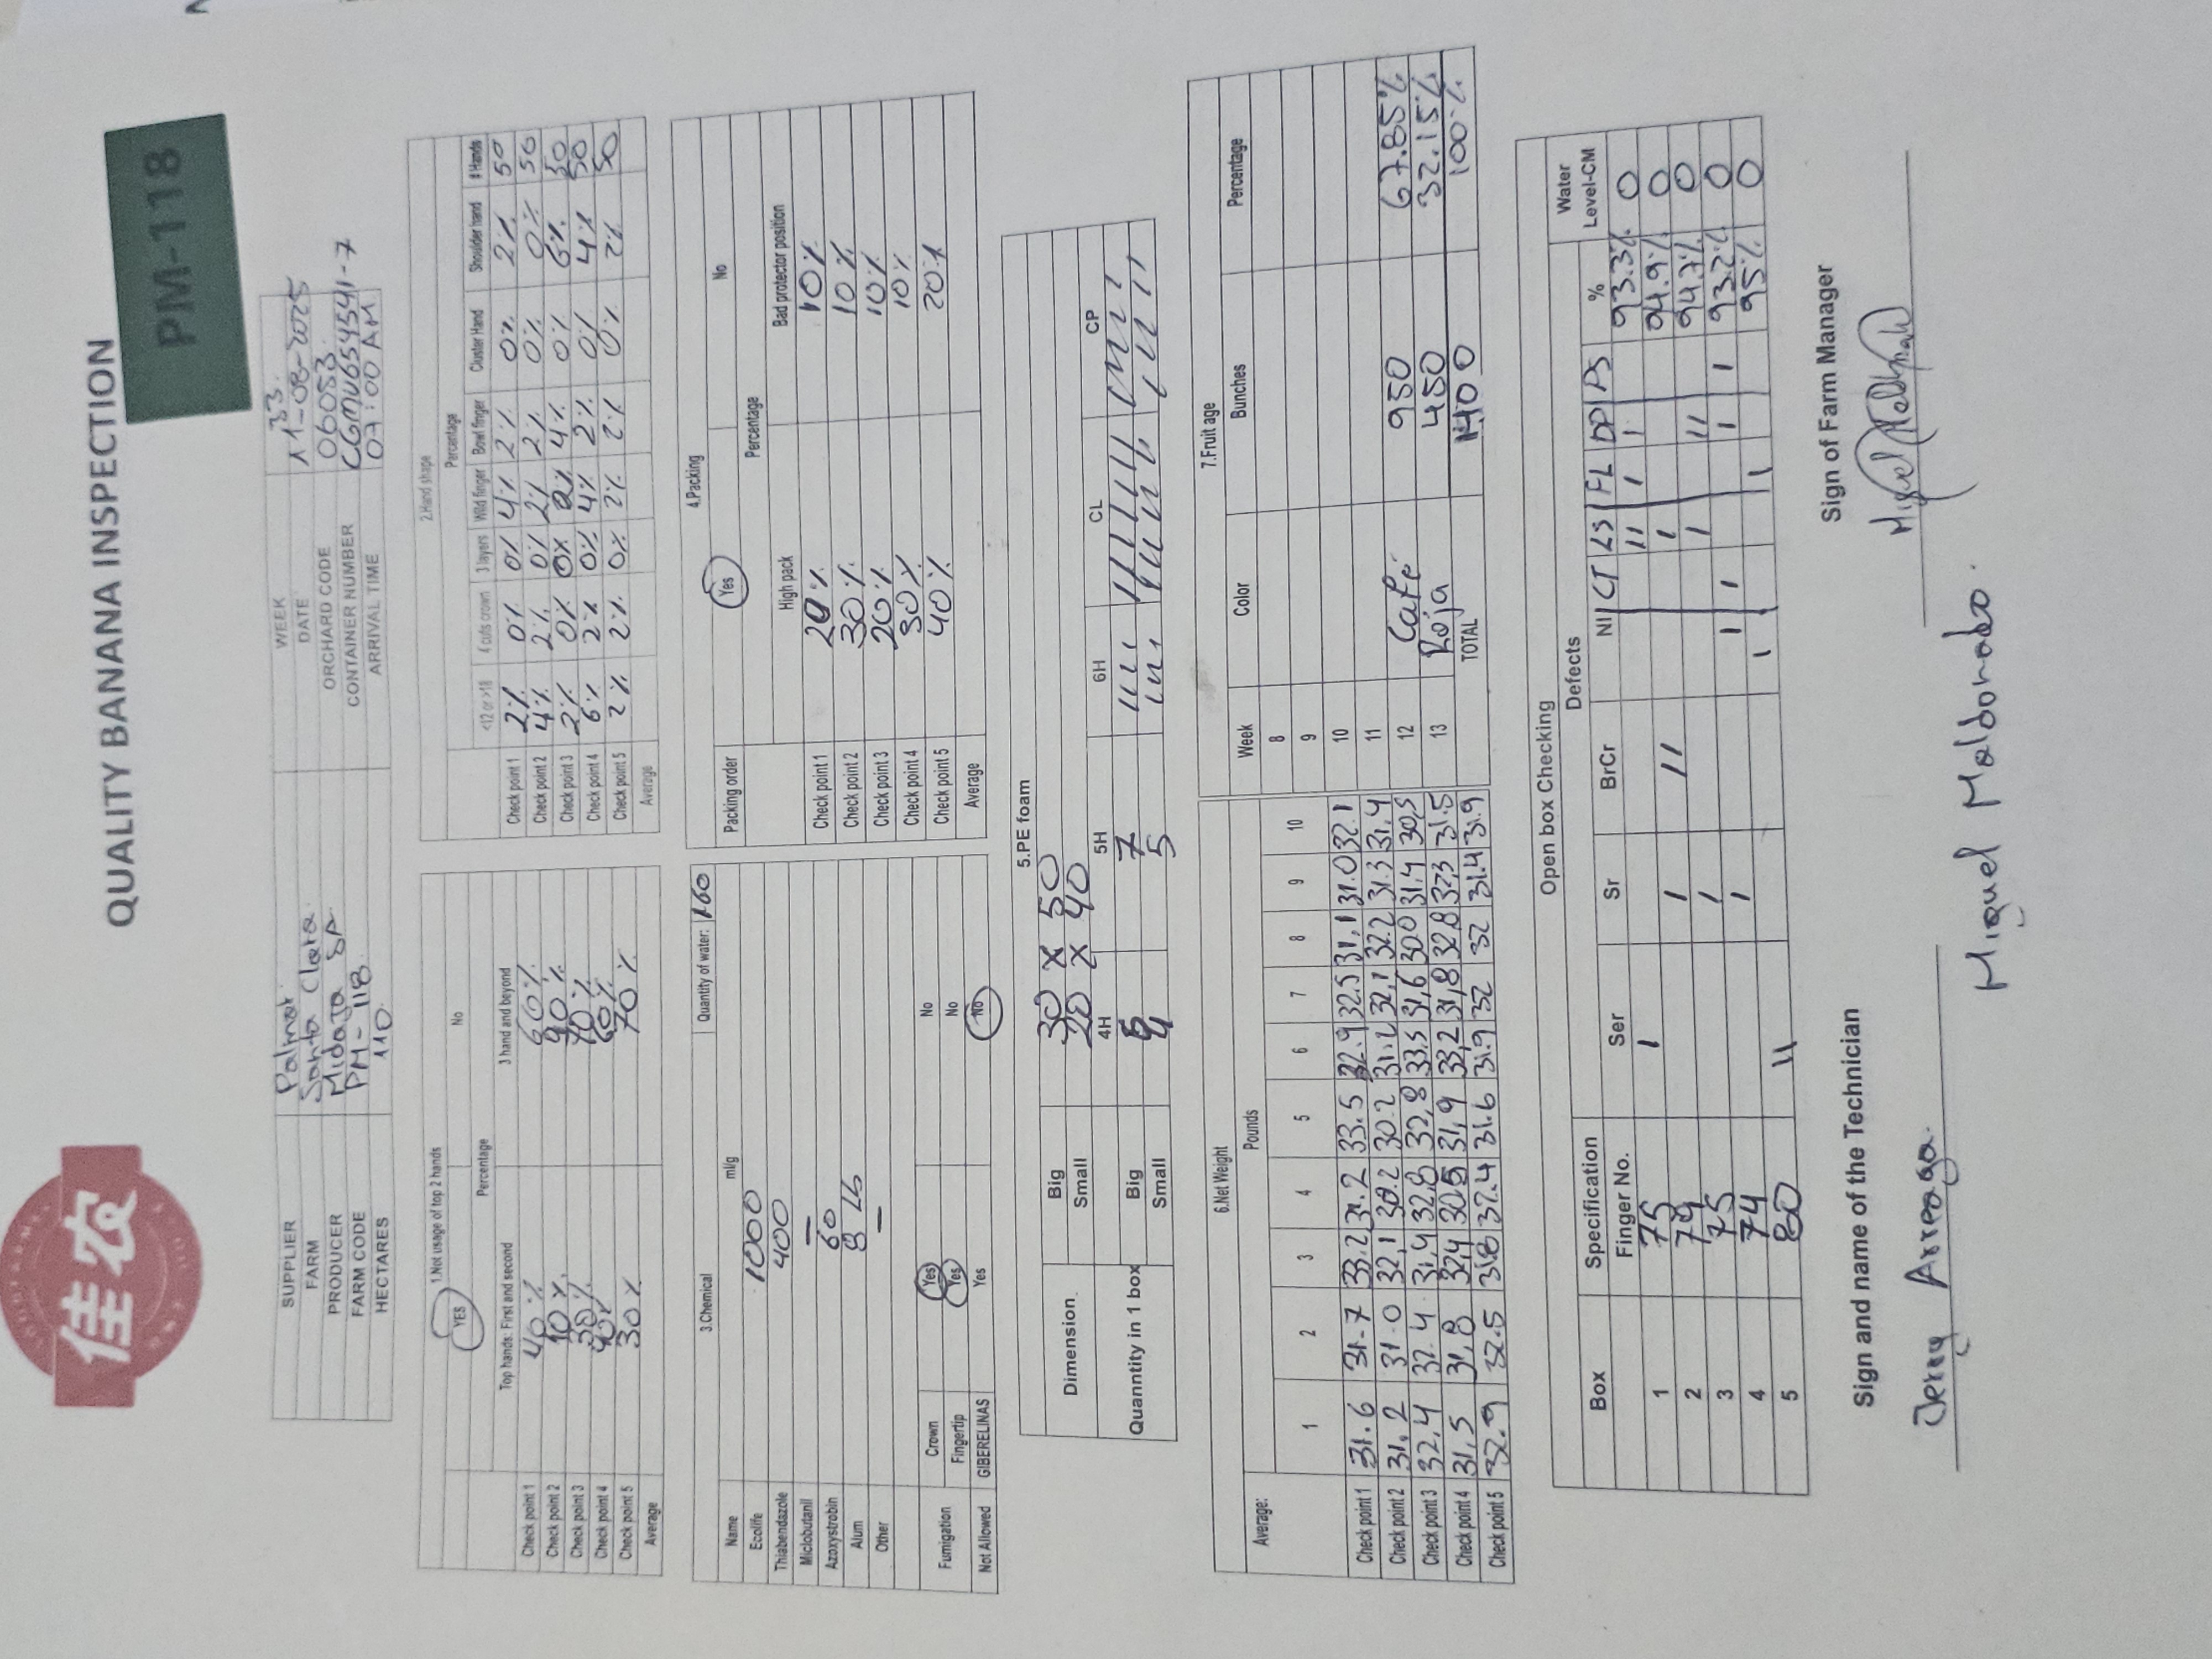 佳农
QUALITY BANANA INSPECTION
PM-118
SUPPLIER Palmar WEEK 33
FARM Santa Clara DATE 11-08-2025
PRODUCER Midaja SA ORCHARD CODE 06083
FARM CODE PM-118 CONTAINER NUMBER CGMU654541-7
HECTARES 110 ARRIVAL TIME 07:00 AM
1.Not usage of top 2 hands
YES No
Percentage
Top hands: First and second 3 hand and beyond
Check point 1 40% 60%
Check point 2 10% 90%
Check point 3 30% 70%
Check point 4 40% 60%
Check point 5 30% 70%
Average
2.Hand shape
Percentage
<12 or >18 4 cuts crown 3 layers Wild finger Bowl finger Cluster Hand Shoulder hand # Hands
Check point 1 2% 0% 0% 4% 2% 0% 2% 50
Check point 2 4% 2% 0% 2% 2% 0% 0% 50
Check point 3 2% 0% 0% 2% 4% 0% 6% 50
Check point 4 6% 2% 0% 4% 2% 0% 4% 50
Check point 5 2% 2% 0% 2% 2% 0% 2% 50
Average
3.Chemical Quantity of water: 160
Name ml/g
Ecolife 1000
Thiabendazole 400
Miclobutanil —
Azoxystrobin 60
Alum 8 Lb
Other —
Fumigation Crown Yes No
Fingertip Yes No
Not Allowed GIBERELINAS Yes No
4.Packing
Packing order Yes No
Percentage
High pack Bad protector position
Check point 1 20% 10%
Check point 2 30% 10%
Check point 3 20% 10%
Check point 4 30% 10%
Check point 5 40% 20%
Average
5.PE foam
Dimension Big 30 x 50
Small 20 x 40
4H 5H 6H CL CP
Quanntity in 1 box Big 6 7
Small 4 5
6.Net Weight
Average: Pounds
1 2 3 4 5 6 7 8 9 10
Check point 1 31.6 31.7 33.2 31.2 33.5 32.9 32.5 31,1 31.0 32.1
Check point 2 31.2 31.0 32,1 30.2 30.2 31.2 32,1 32.2 31.3 31,4
Check point 3 32,4 32.4 31,4 32,8 32,8 33,5 31,6 30.0 31.4 30,5
Check point 4 31,5 31,8 32,4 30.5 31,9 33,2 31,8 32,8 32,3 31.5
Check point 5 32.9 32.5 31.8 32.4 31.6 31.9 32 32 31.4 31.9
7.Fruit age
Week Color Bunches Percentage
8
9
10
11
12 Café 950 67.85%
13 Roja 450 32.15%
TOTAL 1400 100%
Open box Checking
Box Specification Defects Water
Finger No. Ser Sr BrCr NI CT LS FL DP PS % Level-CM
1 75 I II I I 93.3% 0
2 79 I II I 94.9% 0
3 75 I I II 94.7% 0
4 74 I I I I I 93.2% 0
5 80 II I I 95% 0
Sign and name of the Technician
Sign of Farm Manager
Jerry Arreaga.
Miguel Maldonado
Miguel Maldonado.